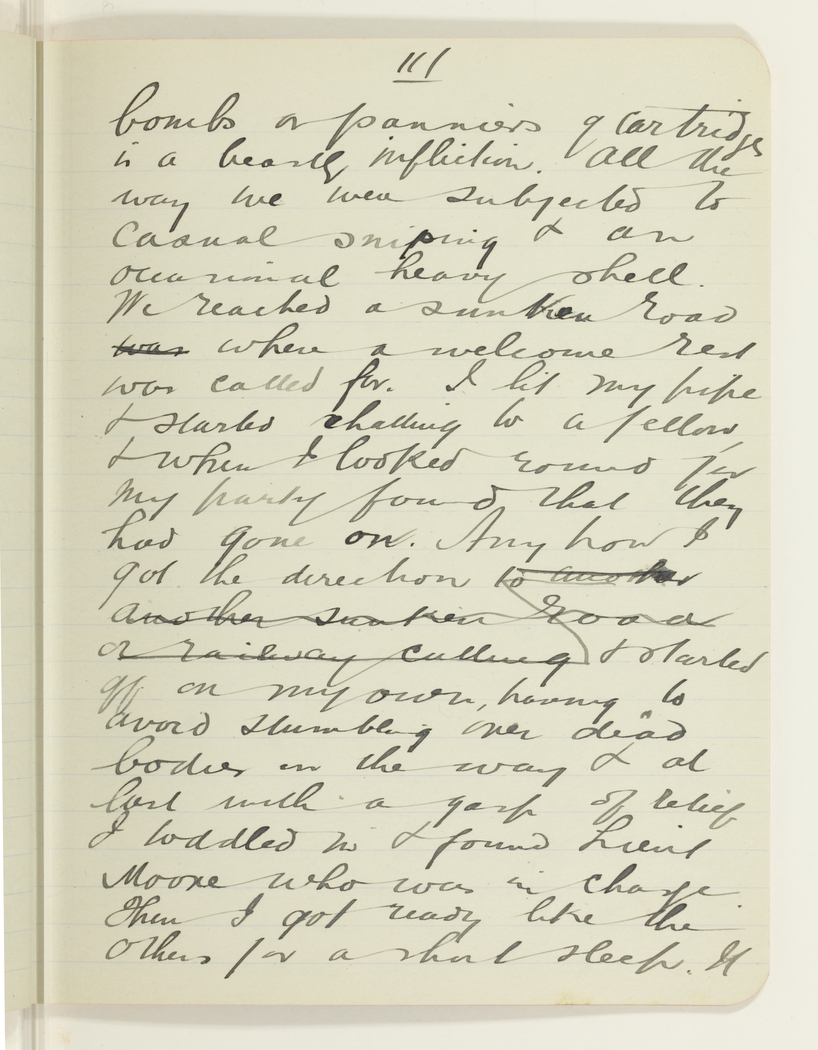 111
bombs or panniers of cartridges
is a beastly infliction. All the
way we were subjected to
casual sniping & an
occasional heavy shell.
We reached a sunken road
was where a welcome rest
was called for. I lit my pipe
& started chatting to a fellow,
& when I looked round for
my party found that they
had gone on. Any how I
got the direction to another
another sunken road
or railway cutting & started
off on my own, having to
avoid stumbling over dead
bodies on the way & at
last with a gasp of relief
I toddled in & found Lieut
Moore who was in charge
Then I got ready like the
others for a short sleep. It